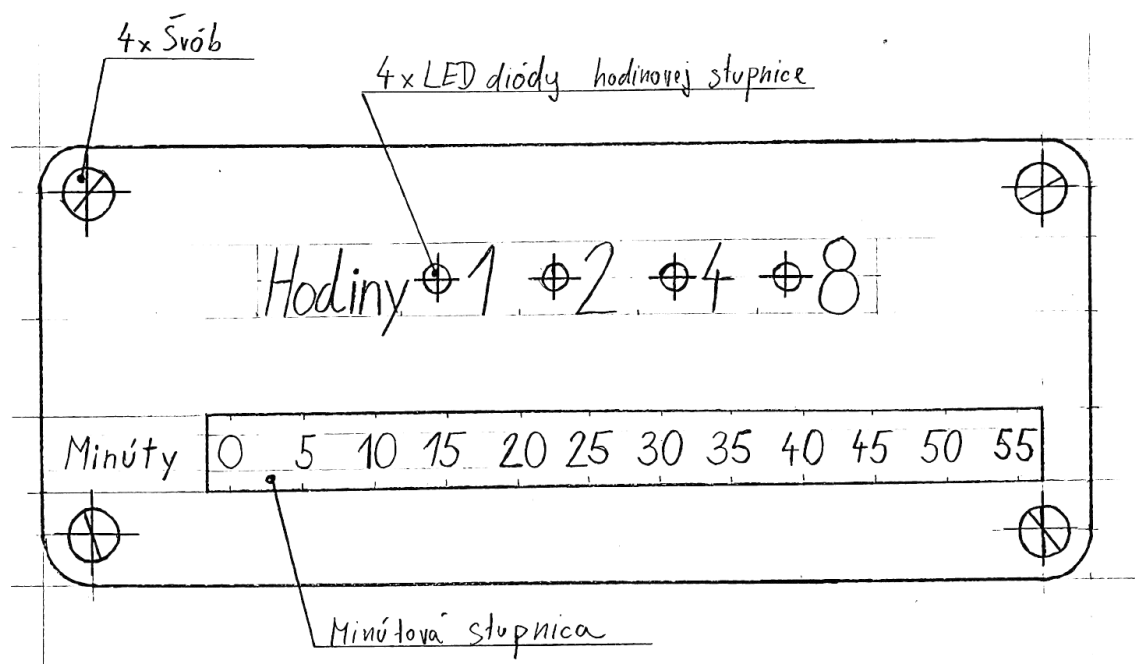 4x Švób
4x LED diódy hodinovej stupnice
Hodiny 1 2 4 8
Minúty 0 5 10 15 20 25 30 35 40 45 50 55
Minútová stupnica